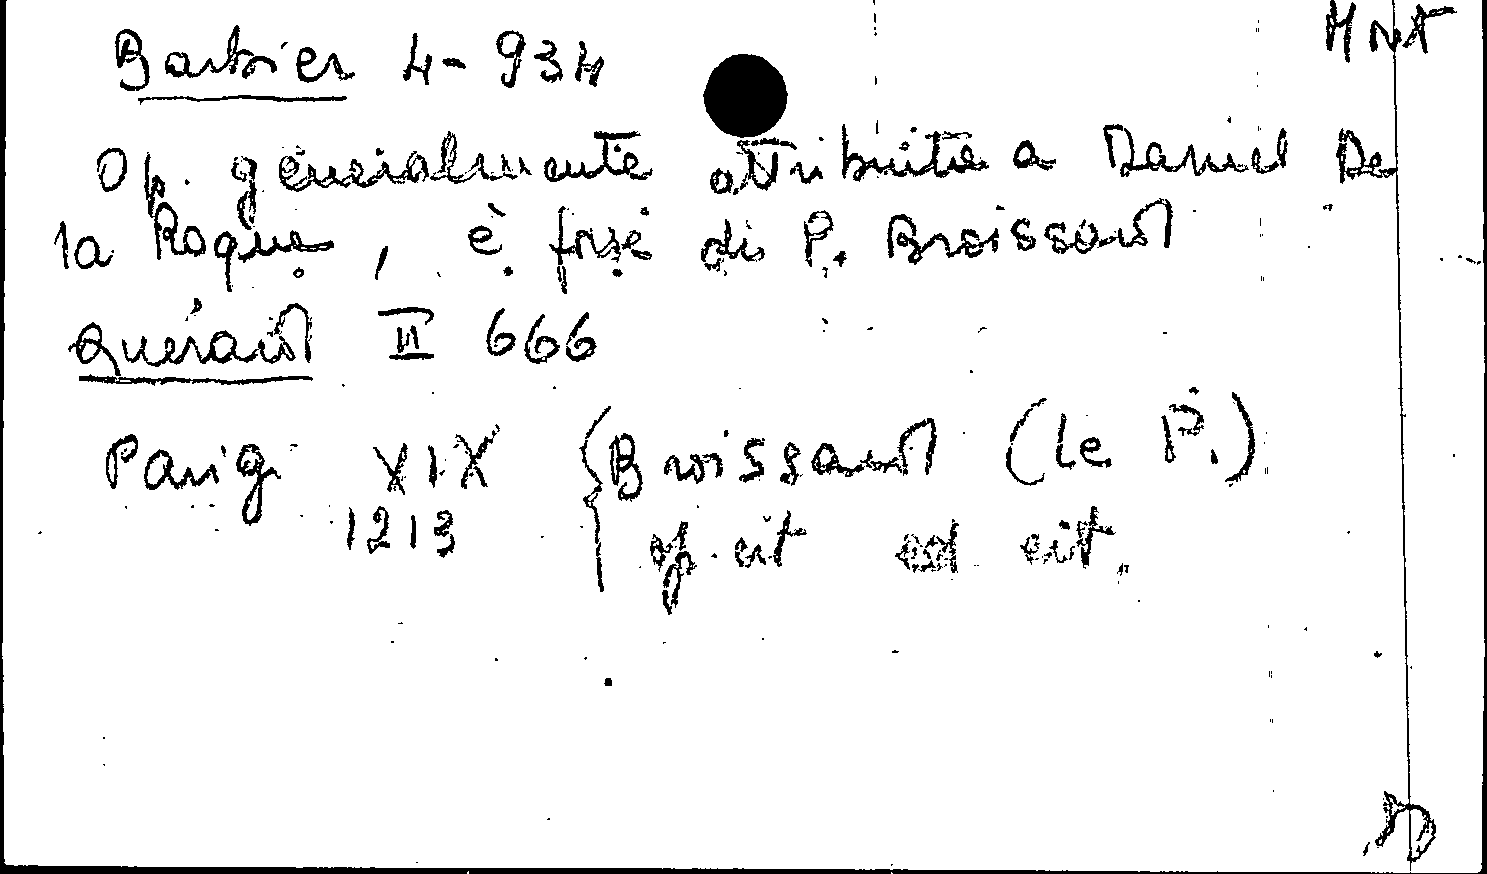 Barbier 4-934
Op. generalmente attribuita a Daniel De
la Roque, è forse di P. Broissard
Quérard II 666
Parigi XIX { Broissard (le P.)
1213 op. cit ed cit.